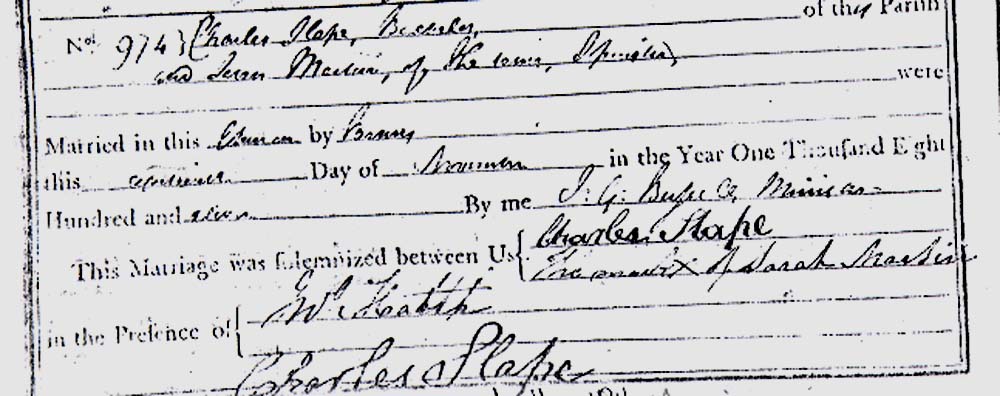 No. 974 } Charles Slape, Bachelor, of this Parish
and Sarah Martin, of the same, Spinster, were
Married in this Church by Banns
this Day of November in the Year One Thousand Eight
Hundred and seven By me J. G. Minister
This Marriage was solemnized between Us { Charles Slape
The mark X of Sarah Martin
in the Presence of {
Charles Slape